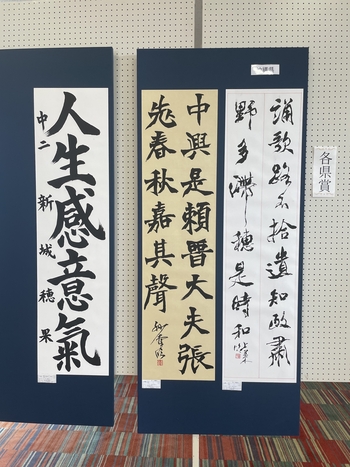 各県賞
誦歌路不拾遺知政肅
野多滯穗是時和
中興是賴晋大夫張
老春秋嘉其聲
人生感意氣
中二 新城穂果